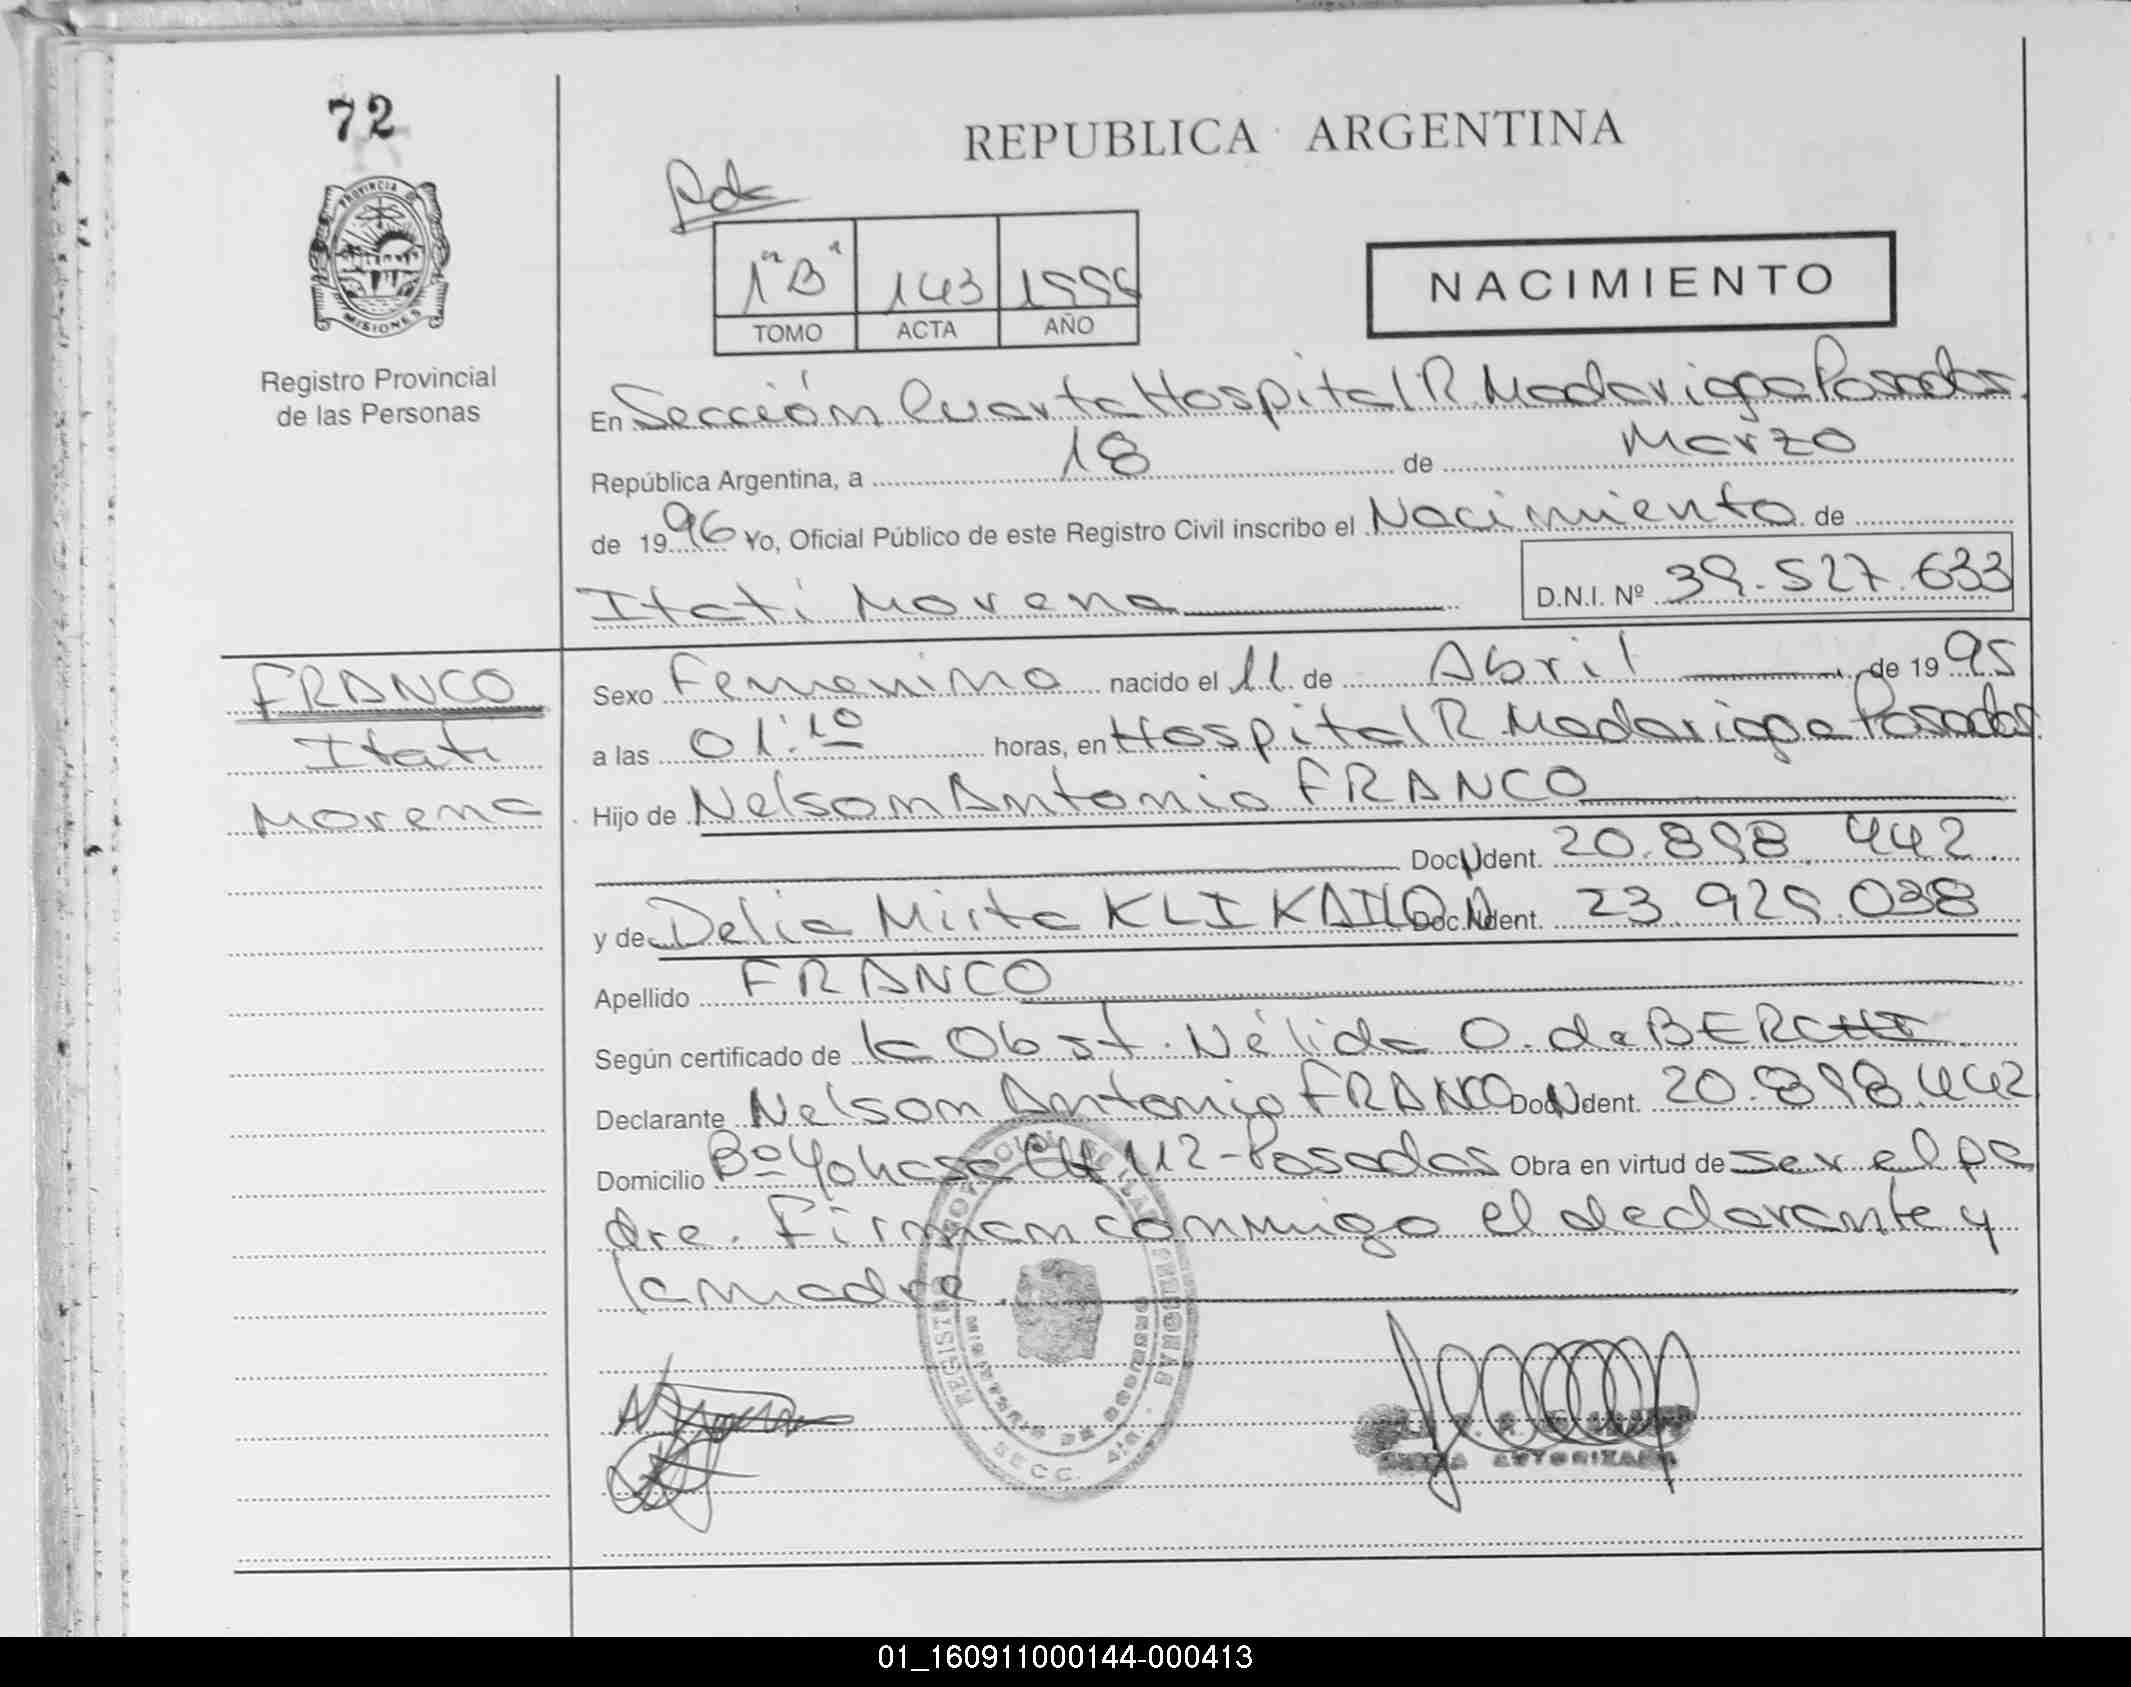 72
REPUBLICA ARGENTINA
PROVINCIA DE
MISIONES
Registro Provincial
de las Personas
Pds
1 "B" 143 1996
TOMO ACTA AÑO
NACIMIENTO
En Sección Cuarta Hospital R. Madariaga Posadas.
República Argentina, a 18 de Marzo
de 1996 Yo, Oficial Público de este Registro Civil inscribo el Nacimiento de
Itatí Morena D.N.I. Nº 39.527.633
FRANCO
Itatí
Morena
Sexo Femenino nacido el 11 de Abril de 1995
a las 01:10 horas, en Hospital R. Madariaga Posadas.
Hijo de Nelson Antonio FRANCO
Doc. Ident. 20.898.442.
y de Delia Mirta Doc. Ident. 23.925.038
Apellido FRANCO
Según certificado de la Obst. Nélida O. de BERCHI
Declarante Nelson Antonio FRANCO Doc. Ident. 20.898.442
Domicilio Bº Yohasa CH 112-Posadas Obra en virtud de ser el pa
dre. Firman conmigo el declarante y
la madre.
REGISTRO PROVINCIAL DE LAS PERSONAS
MISIONES
SECC. 4ta.
AUTORIZADA
01_160911000144-000413